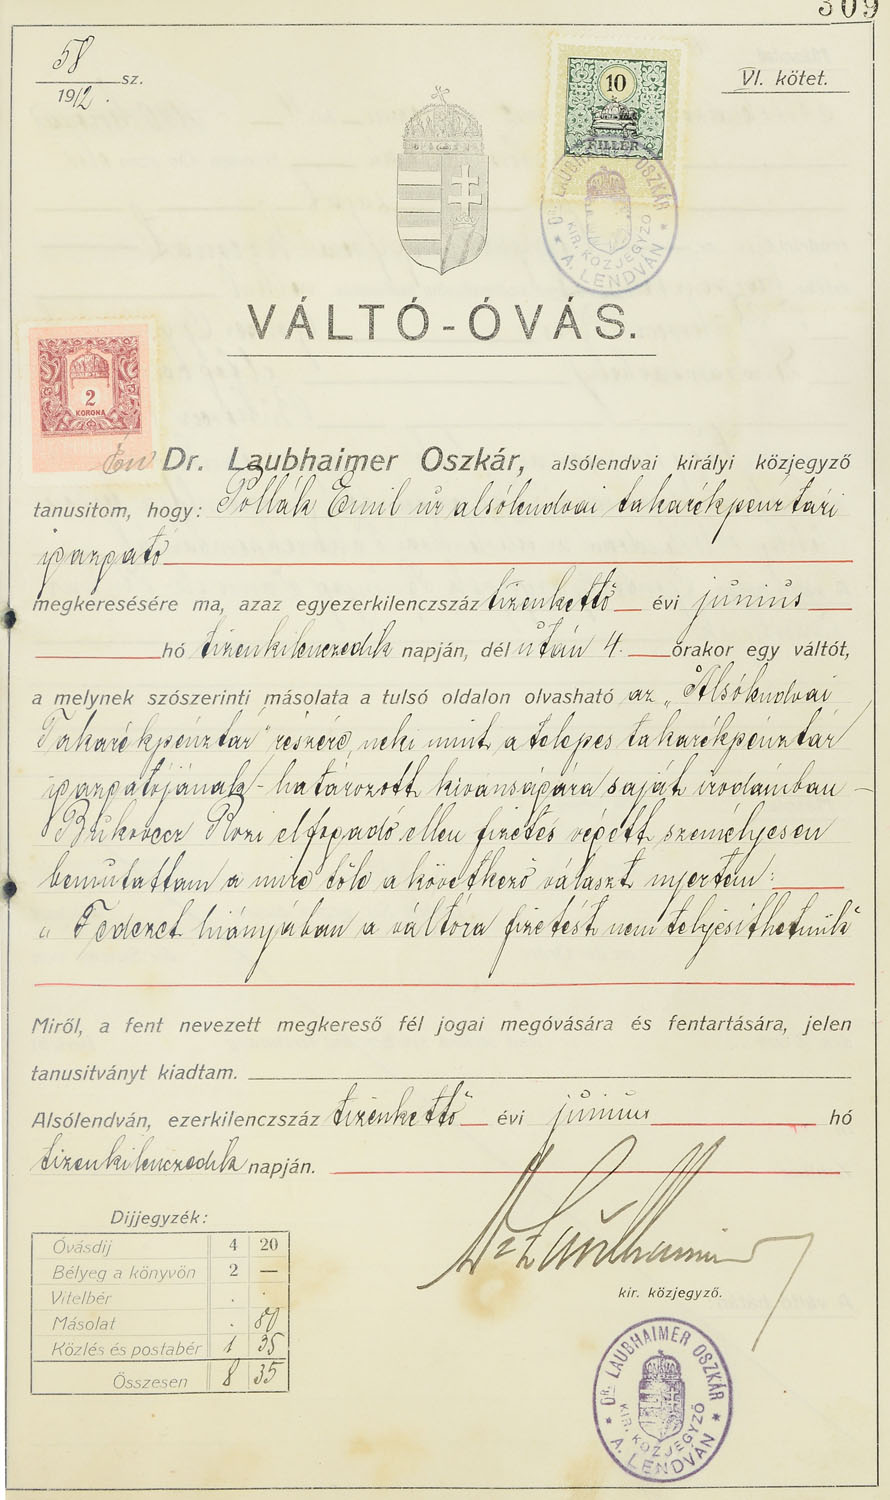 309
58 sz.
1912.
VI. kötet.
10
FILLÉR
DR LAUBHAIMER OSZKÁR
KIR. KÖZJEGYZŐ
* A. LENDVÁN *
VÁLTÓ-ÓVÁS.
2
KORONA
Én Dr. Laubhaimer Oszkár, alsólendvai királyi közjegyző
tanusitom, hogy: Pollák Emil úr alsólendvai takarékpénztári
igazgató
megkeresésére ma, azaz egyezerkilenczszáz tizenkettő évi június
hó tizenkilenczedik napján, dél után 4. órakor egy váltót,
a melynek szószerinti másolata a tulsó oldalon olvasható az „Alsólendvai
Takarékpénztár" részére, neki mint a telepes takarékpénztár
igazgatójának - határozott kivánságára saját irodámban -
Bukovecz Rozi elfogadó ellen fizetés végett személyesen
bemutattam a mire tőle a következő választ nyertem:
„Fedezet hiányjában a váltóra fizetést nem teljesithetnik"
Miről, a fent nevezett megkereső fél jogai megóvására és fentartására, jelen
tanusitványt kiadtam.
Alsólendván, ezerkilenczszáz tizenkettő évi június hó
tizenkilenczedik napján.
Dr Laubhaimer
kir. közjegyző.
Dijjegyzék:
Óvásdij 4 20
Bélyeg a könyvön 2 —
Vitelbér . .
Másolat . 80
Közlés és postabér 1 35
Összesen 8 35
DR. LAUBHAIMER OSZKÁR
KIR. KÖZJEGYZŐ
* A. LENDVÁN *